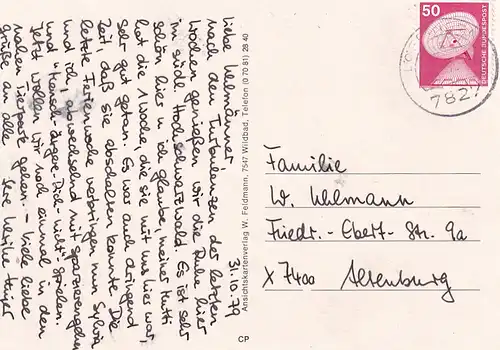 31.10.79
Liebe Uhlmänner!
Nach den Turbulenzen der letzten
Wochen genießen wir die Ruhe hier
im südl. Hochschwarzwald. Es ist sehr
schön hier u. ich glaube, meiner Mutti
hat die 1 Woche, die sie mit uns hier war,
sehr gut getan. Es war auch dringend
Zeit, daß sie abschalten konnte. Die
letzte Ferienwoche verbringen nun Sylvia
und ich, abwechselnd mit spazierengehen
und "Mensch-ärgere-Dich-nicht" spielen.
Jetzt wollen wir noch einmal in den
nahen Tierpark gehen. - Viele liebe
Grüße an alle
Ansichtskartenverlag W. Feldmann, 7547 Wildbad, Telefon (0 70 81) 28 40
CP
50
DEUTSCHE BUNDESPOST
7827
Familie
W. Uhlmann
Friedr.-Ebert-Str. 9a
X 7400 Altenburg